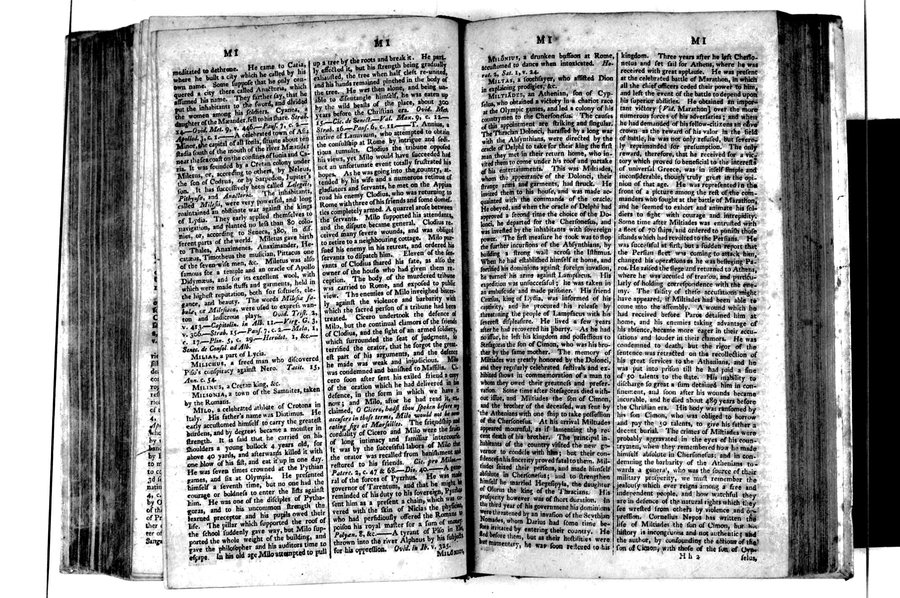 MI
meditated to dethrone. He came to Caria,
where he built a city which he called by his
own name. Some suppose that he only con-
quered a city there called Anactoria, which
assumed his name. They farther say, that he
put the inhabitants to the sword, and divided
the women among his soldiers. Cyanea, a
daughter of the Mæander fell to his share. Strab.
24.—Ovid. Met. 9, v. 446.—Paus. 7, c. 2.—
Apollod. 3, c. 1.—A celebrated town of Asia
Minor, the capital of all Ionia, situate about ten
stadia south of the mouth of the river Mæander
near the sea coast on the confines of Ionia and Ca-
ria. It was founded by a Cretan colony under
Miletus, or, according to others, by Neleus,
the son of Codrus, or by Sarpedon, Jupiter's
son. It has successively been called Lelegeis,
Pithyusa, and Anactoria. The inhabitants,
called Milesii, were very powerful, and long
maintained an obstinate war against the kings
of Lydia. They early applied themselves to
navigation, and planted no less than 80 colo-
nies, or, according to Seneca, 380, in dif-
ferent parts of the world. Miletus gave birth
to Thales, Anaximenes, Anaximander, He-
catæus, Timotheus the musician, Pittacus one
of the seven wise men, &c. Miletus was also
famous for a temple and an oracle of Apollo
Didymæus, and for its excellent wool, with
which were made stuffs and garments, held in
the highest reputation, both for softness, ele-
gance, and beauty. The words Milesiæ fa-
bulæ, or Milesiaca, were used to express wan-
ton and ludicrous plays. Ovid. Trist. 2,
v. 413.—Capitolin. in Alb. 11.—Virg. G. 3,
v. 306.—Strab. 15.—Paus. 7, c. 2.—Mela, 1,
c. 17.—Plin. 5, c. 29.—Herodot. 1, &c.—
Senec. de Consol. ad Alb.
MILIAS, a part of Lycia.
MILICHUS, a freed man who discovered
Piso's conspiracy against Nero. Tacit. 15,
Ann. c. 54.
MILINUS, a Cretan king, &c.
MILIONIA, a town of the Samnites, taken
by the Romans.
MILO, a celebrated athlete of Crotona in
Italy. His father's name was Diotimus. He
early accustomed himself to carry the greatest
burdens, and by degrees became a monster in
strength. It is said that he carried on his
shoulders a young bullock 4 years old, for
above 40 yards, and afterwards killed it with
one blow of his fist, and eat it up in one day.
He was seven times crowned at the Pythian
games, and six at Olympia. He presented
himself a seventh time, but no one had the
courage or boldness to enter the lists against
him. He was one of the disciples of Pytha-
goras, and to his uncommon strength the
learned preceptor and his pupils owed their
life. The pillar which supported the roof of
the school suddenly gave way, but Milo sup-
ported the whole weight of the building, and
gave the philosopher and his auditors time to
escape. In his old age Milo attempted to pull
MI
up a tree by the roots and break it. He part-
ly effected it, but his strength being gradually
exhausted, the tree when half cleft re-united,
and his hands remained pinched in the body of
the tree. He was then alone, and being un-
able to disentangle himself, he was eaten up
by the wild beasts of the place, about 300
years before the Christian era. Ovid. Met.
15.—Cic. de Senect.—Val. Max. 9, c. 12.—
Strab. 16.—Paus. 6, c. 11.—T. Annius, a
native of Lanuvium, who attempted to obtain
the consulship at Rome by intrigue and sedi-
tious tumults. Clodius the tribune opposed
his views, yet Milo would have succeeded had
not an unfortunate event totally frustrated his
hopes. As he was going into the country, at-
tended by his wife and a numerous retinue of
gladiators and servants, he met on the Appian
road his enemy Clodius, who was returning to
Rome with three of his friends and some domes-
tics completely armed. A quarrel arose between
the servants. Milo supported his attendants,
and the dispute became general. Clodius re-
ceived many severe wounds, and was obliged
to retire to a neighbouring cottage. Milo pur-
sued his enemy in his retreat, and ordered his
servants to dispatch him. Eleven of the ser-
vants of Clodius shared his fate, as also the
owner of the house who had given them re-
ception. The body of the murdered tribune
was carried to Rome, and exposed to public
view. The enemies of Milo inveighed bitter-
ly against the violence and barbarity with
which the sacred person of a tribune had been
treated. Cicero undertook the defence of
Milo, but the continual clamors of the friends
of Clodius, and the sight of an armed soldiery,
which surrounded the seat of judgment, so
terrified the orator, that he forgot the great-
est part of his arguments, and the defence
he made was weak and injudicious. Milo
was condemned and banished to Massilia. Ci-
cero soon after sent his exiled friend a copy
of the oration which he had delivered in his
defence, in the form in which we have it
now; and Milo, after he had read it, ex-
claimed, O Cicero, hadst thou spoken before my
accusers in those terms, Milo would not be now
eating figs at Marseilles. The friendship and
cordiality of Cicero and Milo were the fruits
of long intimacy and familiar intercourse.
It was by the successful labors of Milo that
the orator was recalled from banishment and
restored to his friends. Cic. pro Milon.—
Paterc. 2, c. 47 & 68.—Dio. 40.—A gene-
ral of the forces of Pyrrhus. He was made
governor of Tarentum, and that he might be
reminded of his duty to his sovereign, Pyrrhus
sent him as a present a chain, which was co-
vered with the skin of Nicias the physician,
who had perfidiously offered the Romans to
poison his royal master for a sum of money.
Polyæn. 8, &c.—A tyrant of Pisa in Elis,
thrown into the river Alpheus by his subjects
for his oppression. Ovid. in Ib. v. 325.
MILONIUS,
MI
MILONIUS, a drunken buffoon at Rome,
accustomed to dance when intoxicated. Ho-
rat. 2, Sat. 1, v. 24.
MILTAS, a soothsayer, who assisted Dion
in explaining prodigies, &c.
MILTIADES, an Athenian, son of Cyp-
selus, who obtained a victory in a chariot race
at the Olympic games, and led a colony of his
countrymen to the Chersonesus. The causes
of this appointment are striking and singular.
The Thracian Dolonci, harassed by a long war
with the Absynthians, were directed by the
oracle of Delphi to take for their king the first
man they met in their return home, who in-
vited them to come under his roof and partake
of his entertainments. This was Miltiades,
whom the appearance of the Dolonci, their
strange arms and garments, had struck. He
invited them to his house, and was made ac-
quainted with the commands of the oracle.
He obeyed, and when the oracle of Delphi had
approved a second time the choice of the Do-
lonci, he departed for the Chersonesus, and
was invested by the inhabitants with sovereign
power. The first measure he took was to stop
the further incursions of the Absynthians, by
building a strong wall across the Isthmus.
When he had established himself at home, and
fortified his dominions against foreign invasion,
he turned his arms against Lampsacus. His
expedition was unsuccessful; he was taken in
an ambuscade and made prisoner. His friend
Crœsus, king of Lydia, was informed of his
captivity, and he procured his release by
threatening the people of Lampsacus with his
severest displeasure. He lived a few years
after he had recovered his liberty. As he had
no issue, he left his kingdom and possessions to
Stesagoras the son of Cimon, who was his bro-
ther by the same mother. The memory of
Miltiades was greatly honored by the Dolonci,
and they regularly celebrated festivals and ex-
hibited shows in commemoration of a man to
whom they owed their greatness and preser-
vation. Some time after Stesagoras died with-
out issue, and Miltiades the son of Cimon,
and the brother of the deceased, was sent by
the Athenians with one ship to take possession
of the Chersonesus. At his arrival Miltiades
appeared mournful, as if lamenting the re-
cent death of his brother. The principal in-
habitants of the country visited the new go-
vernor to condole with him; but their con-
fidence in his sincerity proved fatal to them. Mil-
tiades seized their persons, and made himself
absolute in Chersonesus; and to strengthen
himself he married Hegesipyla, the daughter
of Olorus the king of the Thracians. His
prosperity however was of short duration. In
the third year of his government his dominions
were threatened by an invasion of the Scythian
Nomades, whom Darius had some time be-
fore irritated by entering their country. He
fled before them, but as their hostilities were
but momentary, he was soon restored to his
MI
kingdom. Three years after he left Cherso-
nesus and set sail for Athens, where he was
received with great applause. He was present
at the celebrated battle of Marathon, in which
all the chief officers ceded their power to him,
and left the event of the battle to depend upon
his superior abilities. He obtained an impor-
tant victory [Vid. Marathon] over the more
numerous forces of his adversaries; and when
he had demanded of his fellow-citizens an olive
crown as the reward of his valor in the field
of battle, he was not only refused, but severely
reprimanded for presumption. The only
reward, therefore, that he received for a vic-
tory which proved so beneficial to the interests
of universal Greece, was in itself simple and
inconsiderable, though truly great in the opi-
nion of that age. He was represented in the
front of a picture among the rest of the com-
manders who fought at the battle of Marathon,
and he seemed to exhort and animate his sol-
diers to fight with courage and intrepidity.
Some time after Miltiades was entrusted with
a fleet of 70 ships, and ordered to punish those
islands which had revolted to the Persians. He
was successful at first, but a sudden report that
the Persian fleet was coming to attack him,
changed his operations as he was besieging Pa-
ros. He raised the siege and returned to Athens,
where he was accused of treason, and particu-
larly of holding correspondence with the ene-
my. The falsity of these accusations might
have appeared, if Miltiades had been able to
come into the assembly. A wound which he
had received before Paros detained him at
home, and his enemies taking advantage of
his absence, became more eager in their accu-
sations and louder in their clamors. He was
condemned to death, but the rigor of the
sentence was retracted on the recollection of
his great services to the Athenians, and he
was put into prison till he had paid a fine
of 50 talents to the state. His inability to
discharge so great a sum detained him in con-
finement, and soon after his wounds became
incurable, and he died about 489 years before
the Christian era. His body was ransomed by
his son Cimon, who was obliged to borrow
and pay the 50 talents, to give his father a
decent burial. The crimes of Miltiades were
probably aggravated in the eyes of his coun-
trymen, when they remembered how he made
himself absolute in Chersonesus; and in con-
demning the barbarity of the Athenians to-
wards a general, who was the source of their
military prosperity, we must remember the
jealousy which ever reigns among a free and
independent people, and how watchful they
are in defence of the natural rights which they
see wrested from others by violence and op-
pression. Cornelius Nepos has written the
life of Miltiades the son of Cimon, but his
history is incongruous and not authentic; and
the author, by confounding the actions of the
son of Cimon, with those of the son of Cyp-
Hh2
selus,